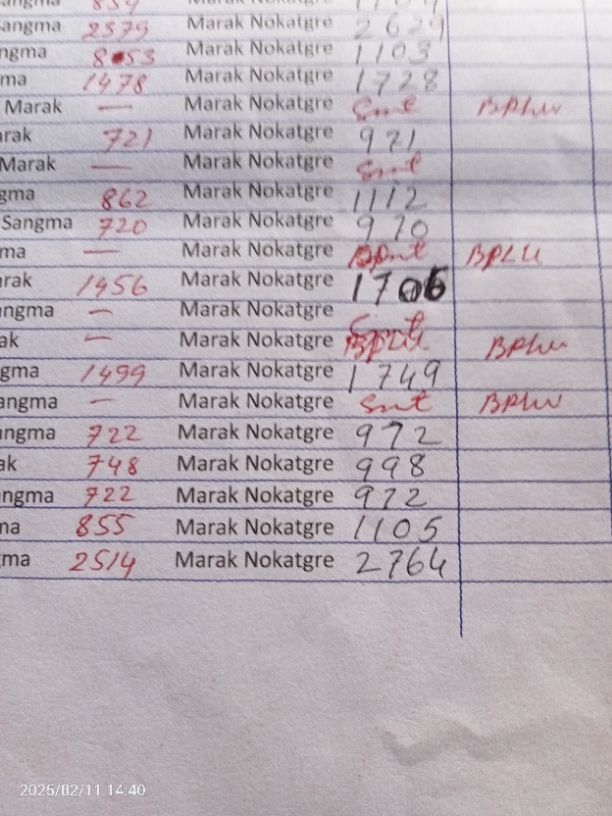 Sangma 859 Marak Nokatgre
Sangma 2379 Marak Nokatgre 2629
ngma 853 Marak Nokatgre 1103
ma 1478 Marak Nokatgre 1728
Marak — Marak Nokatgre Smt
arak 721 Marak Nokatgre 971
Marak — Marak Nokatgre Smt
gma 862 Marak Nokatgre 1112
Sangma 720 Marak Nokatgre 970
ma — Marak Nokatgre
arak 1456 Marak Nokatgre 1706
angma — Marak Nokatgre
ak — Marak Nokatgre
gma 1499 Marak Nokatgre 1749
angma — Marak Nokatgre Smt
angma 722 Marak Nokatgre 972
ak 748 Marak Nokatgre 998
angma 722 Marak Nokatgre 972
ma 855 Marak Nokatgre 1105
gma 2514 Marak Nokatgre 2764
2025/02/11 14:40